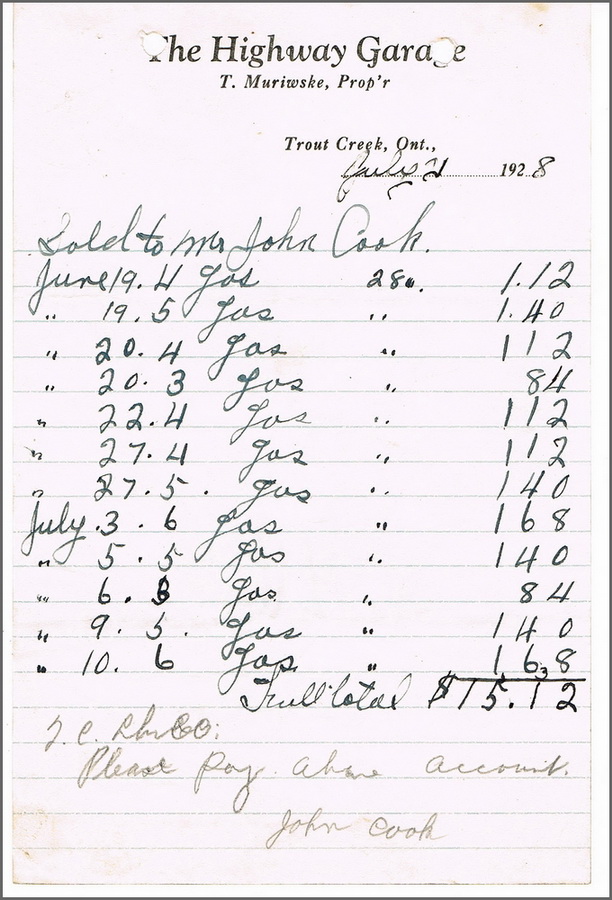 The Highway Garage
T. Muriwske, Prop'r
Trout Creek, Ont.,
July 21 1928
Sold to Mr John Cook.
June 19. 4 Gas 28 ". 1.12
" 19. 5 Gas " 1.40
" 20. 4 Gas " 112
" 20. 3 Gas " 84
" 22. 4 Gas " 112
" 27. 4 Gas " 112
" 27. 5. Gas " 140
July. 3. 6 Gas " 168
" 5. 5 Gas " 140
" 6. 3 Gas " 84
" 9. 5. Gas " 140
" 10. 6 Gas. " 168
Full total $15.12
T. C. Co:
Please Pay. above account.
John Cook